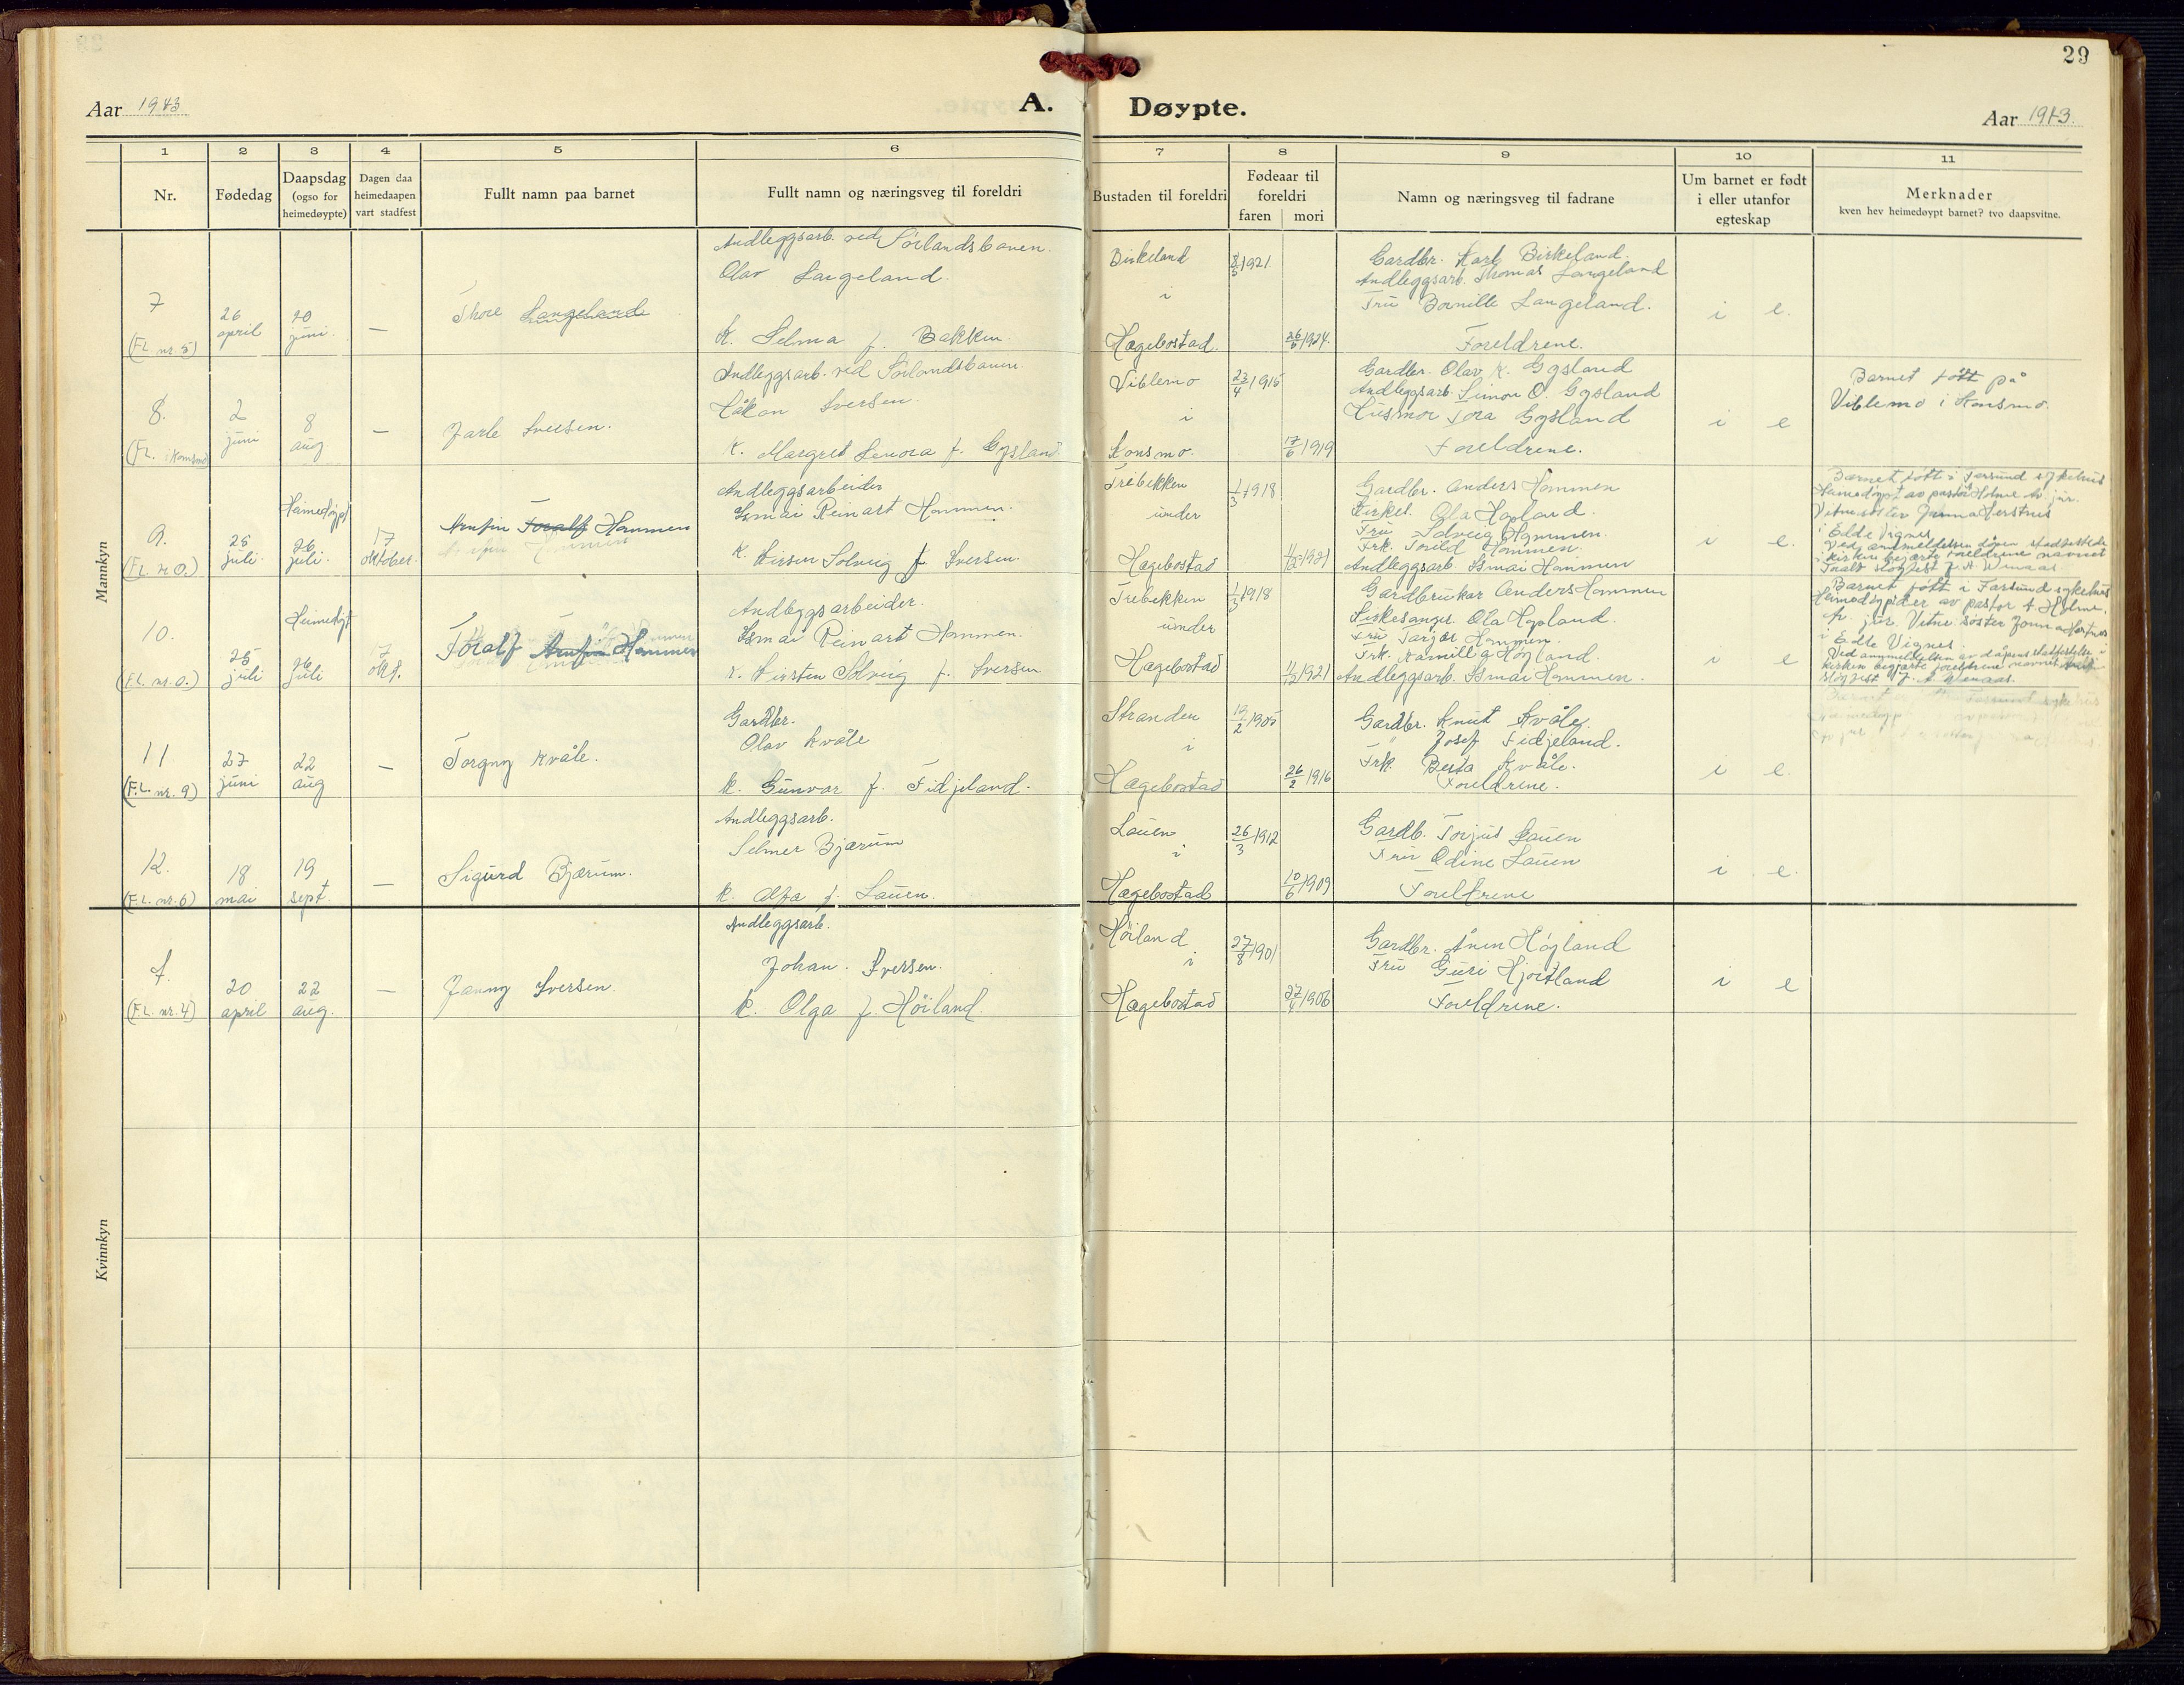 29
Aar 1943
A. Døypte.
Aar 1943.
1 2 3 4 5 6 7 8 9 10 11
Nr.
Fødedag
Daapsdag (ogso for heimedøypte)
Dagen daa heimedaapen vart stadfest
Fullt namn paa barnet
Fullt namn og næringsveg til foreldri
Bustaden til foreldri
Fødeaar til foreldri
faren mori
Namn og næringsveg til fadrane
Um barnet er født i eller utanfor egteskap
Merknader
kven hev heimedøypt barnet? tvo daapsvitne.
Mannkyn
7
(F.L. nr. 5)
26 april
20 juni
—
Thore Langeland
Andleggsarb. ved Sörlandsbanen.
Olav Langeland.
k. Selma f. Bakken
Birkeland
i
Hægebostad
8/3 1921
26/6 1924.
Gardbr. Karl Birkeland.
Andleggsarb. Thomas Langeland
Fru Bornille Langeland.
Foreldrene.
i e.
8.
(F.L. i Konsmo)
2 juni
8 aug
—
Jarle Iversen.
Andleggsarb. ved Sörlandsbanen
Håkon Iversen.
k. Margret Lenora f. Gysland
Viblemo
i
Konsmo.
23/4 1915
17/6 1919
Gardbr. Olav K. Gysland
Andleggsarb. Simon O. Gysland
Husmor Tora Gysland
Foreldrene.
i e
Barnet født på
Viblemo i Konsmo.
9.
(F.L. nr 0.)
25 juli.
Heimedöpt
26 juli.
17 oktober.
Arnfin Toralf Hommen
Andleggsarbeider
Ismai Reinart Hommen.
k. Kirsten Solveig f. Iversen.
Trebekken
under
Hægebostad
1/3 1918
11/12 1921
Gardbr. Anders Hommen
Kirkes. Ola Hopland.
Fru Solveig Hommen.
Frk. Torild Hommen.
Andleggsarb. Ismai Hommen
i e.
Barnet født i Farsund sykehus
Heimedöpt av pastor Holme Ar. jür.
Vitne: söster
i Edle Vignes.
Ved anmeldelsen dåpen stadfestede
i kirken begjærte foreldrene navnet
Toralf slöyfest J. A. Wenaas.
10.
(F.L. nr. 0.)
25 juli
Heimedöpt
26 juli
17 okt.
Toralf Arnfin Hommen
Andleggsarbeider.
Ismai Reinart Hommen.
k. Kirsten Solveig f. Iversen
Trebekken
under
Hægebostad
1/3 1918
11/12 1921
Gardbrukar Anders Hommen
Kirkesanger Ola Hopland.
Fru Tarjer Hommen.
Frk. Kamilla Høyland.
Andleggsarb. Ismai Hommen.
i e
Barnet født i Farsund sykehus
Heimedöpt av pastor A Holme,
Ar. jür. Vitne: söster
i Edle Vignes.
Ved anmeldelsen av dåpens stadfestelse i
kirken begjærte foreldrene navnet
slöyfest J. A. Wenaas.
11
(F.L. nr. 9)
27 juni
22 aug
—
Torgny Kvåle.
Gardbr.
Olav Kvåle
k. Gunvor f. Fidjeland.
Stranden
i
Hægebostad
12/2 1905
26/2 1916
Gardbr. Knut Kvåle.
" Josef Fidjeland.
Frk. Berta Kvåle.
Foreldrene.
i e.
12.
(F.L. nr. 6)
18 mai
19 sept.
—
Sigurd Bjærum.
Andleggsarb.
Selmer Bjærum
k. Alfa f. Lauen.
Lauen
i
Hægebostad
26/3 1912
10/6 1909
Gardb. Torjus Lauen
Fru Odine Lauen
Foreldrene
i e.
Kvinnkyn
7.
(F.L. nr. 4)
20 april
22 aug.
—
Janny Iversen.
Andleggsarb.
Johan. Iversen.
k. Olga f. Höiland.
Höiland
i
Hægebostad
27/8 1901
27/4 1906
Gardbr. Ånen Höyland
Fru Guri Hjortland
Foreldrene.
i e